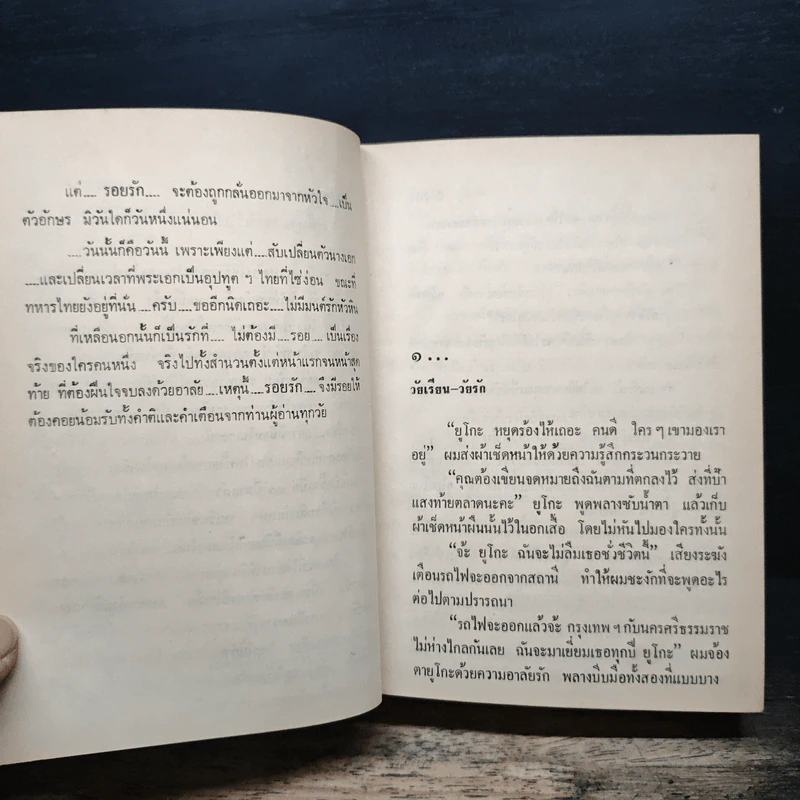 แต่.... รอยรัก.... จะต้องถูกกลั่นออกมาจากหัวใจ....เป็น
ตัวอักษร มิวันใดก็วันหนึ่งแน่นอน
....วันนั้นก็คือวันนี้ เพราะเพียงแต่....สับเปลี่ยนตัวนางเอก
....และเปลี่ยนเวลาที่พระเอกเป็นอุปทูต ฯ ไทยที่ไซ่ง่อน ขณะที่
ทหารไทยยังอยู่ที่นั่น ....ครับ....ขออีกนิดเถอะ....ไม่มีมนต์รักหัวหิน
ที่เหลือนอกนั้นก็เป็นรักที่.... ไม่ต้องมี ....รอย....เป็นเรื่อง
จริงของใครคนหนึ่ง จริงไปทั้งสำนวนตั้งแต่หน้าแรกจนหน้าสุด
ท้าย ที่ต้องฝืนใจจบลงด้วยอาลัย....เหตุนี้....รอยรัก....จึงมีรอยให้
ต้องคอยน้อมรับทั้งคำติและคำเตือนจากท่านผู้อ่านทุกวัย
๑ ...
วัยเรียน–วัยรัก
“ยูโกะ หยุดร้องไห้เถอะ คนดี ใคร ๆ เขามองเรา
อยู่” ผมส่งผ้าเช็ดหน้าให้ด้วยความรู้สึกกระวนกระวาย
“คุณต้องเขียนจดหมายถึงฉันตามที่ตกลงไว้ ส่งที่ป้า
แสงท้ายตลาดนะคะ” ยูโกะ พูดพลางซับน้ำตา แล้วเก็บ
ผ้าเช็ดหน้าผืนนั้นไว้ในอกเสื้อ โดยไม่หันไปมองใครทั้งนั้น
“จ้ะ ยูโกะ ฉันจะไม่ลืมเธอชั่วชีวิตนี้” เสียงระฆัง
เตือนรถไฟจะออกจากสถานี ทำให้ผมชะงักที่จะพูดอะไร
ต่อไปตามปรารถนา
“รถไฟจะออกแล้วจ้ะ กรุงเทพ ฯ กับนครศรีธรรมราช
ไม่ห่างไกลกันเลย ฉันจะมาเยี่ยมเธอทุกปี ยูโกะ” ผมจ้อง
ตายูโกะด้วยความอาลัยรัก พลางบีบมือทั้งสองที่แบบบาง